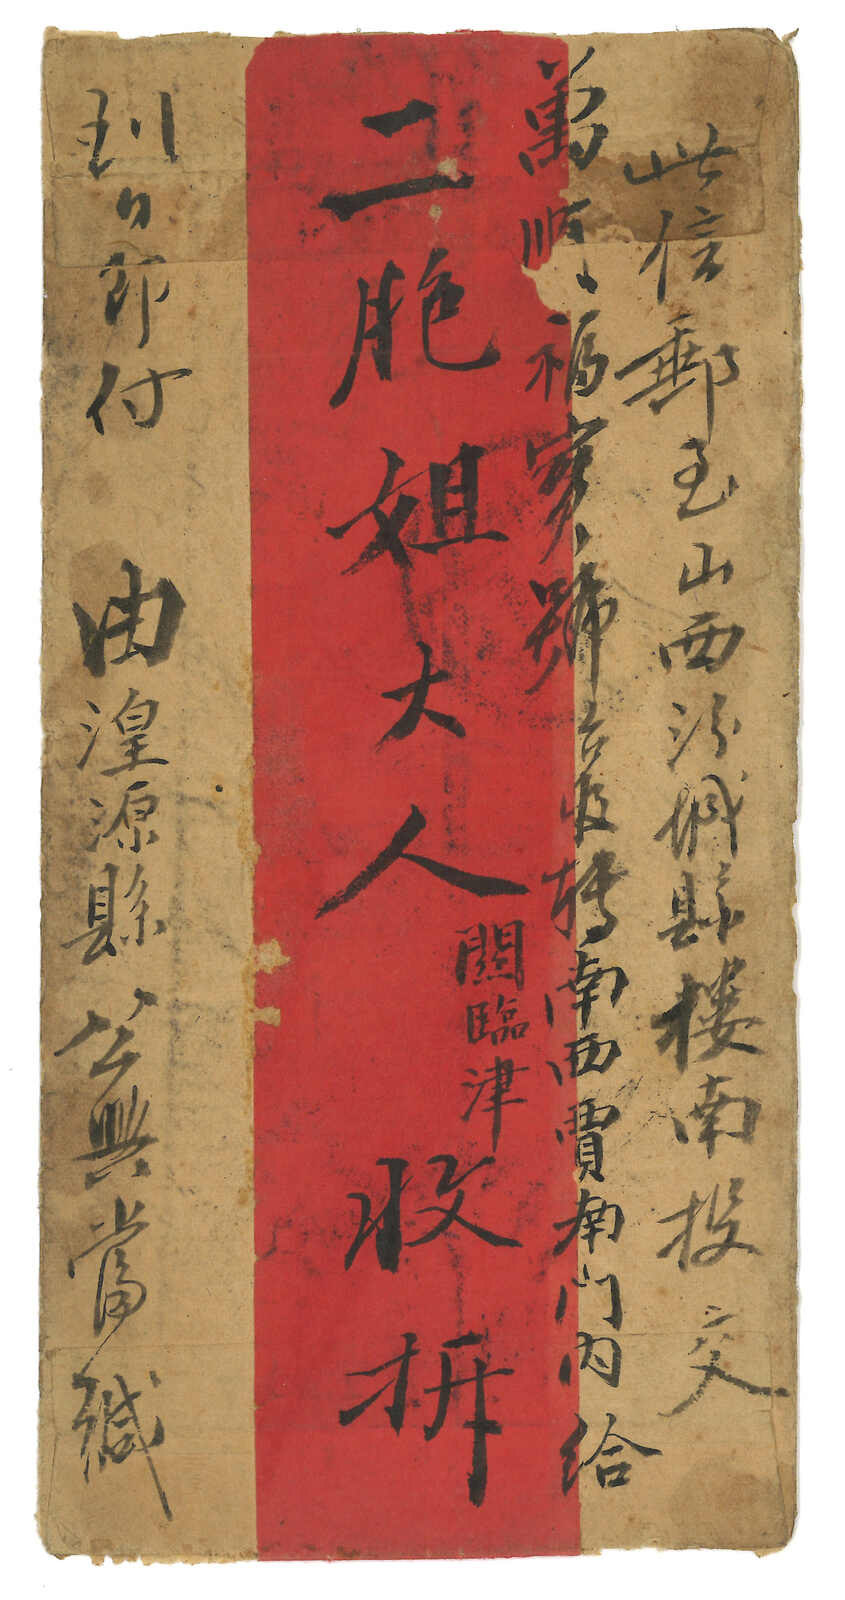 此信郵至山西汾城縣樓南投交
萬順福寶號台收轉南西賈南門内給
二胞姐大人
關臨津
收拆
到日即付
由湟源縣公興當緘